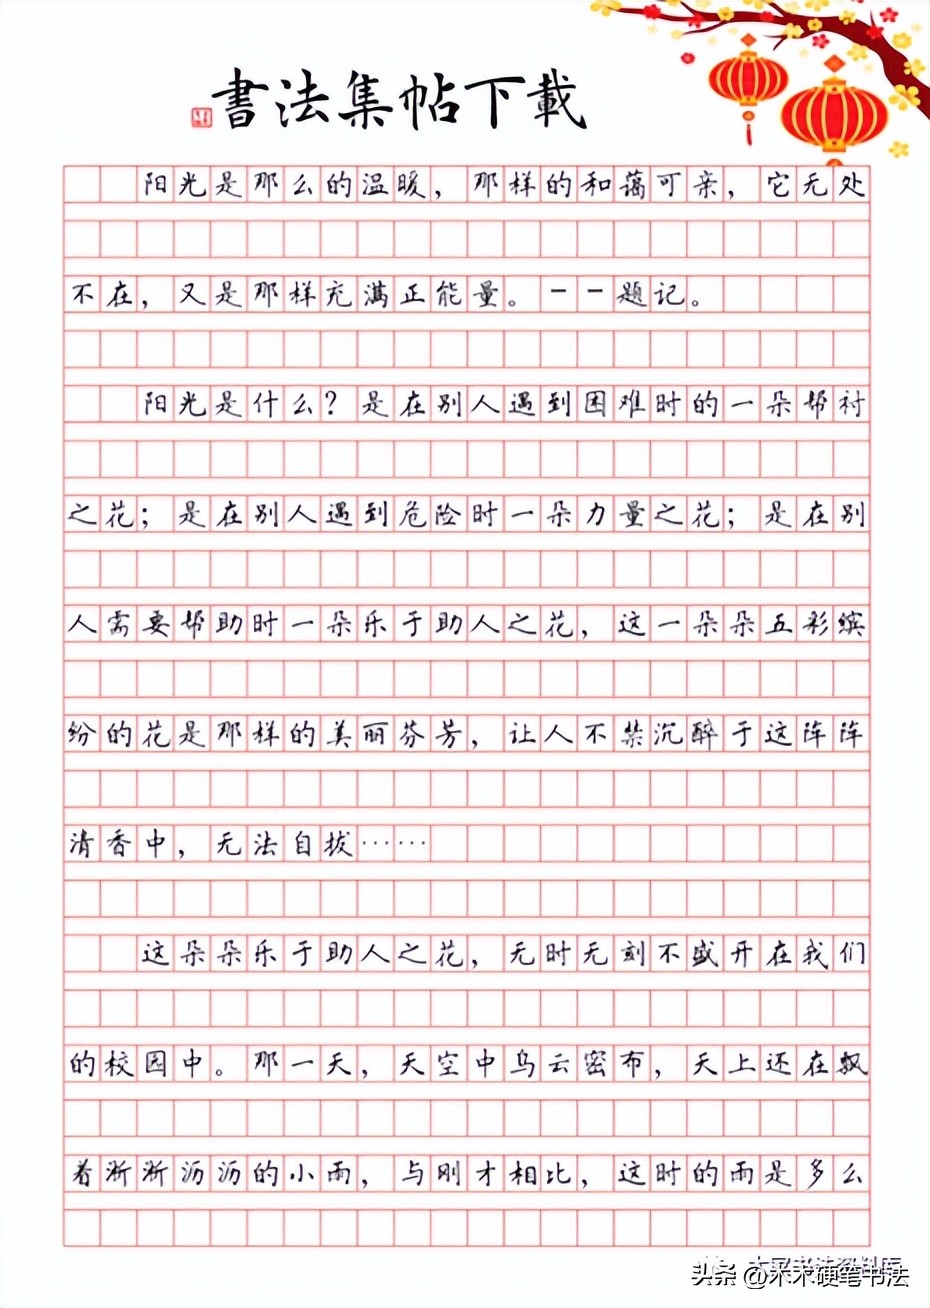 書法集帖下載
阳光是那么的温暖，那样的和蔼可亲，它无处
不在，又是那样充满正能量。－－题记。
阳光是什么？是在别人遇到困难时的一朵帮衬
之花；是在别人遇到危险时一朵力量之花；是在别
人需要帮助时一朵乐于助人之花，这一朵朵五彩缤
纷的花是那样的美丽芬芳，让人不禁沉醉于这阵阵
清香中，无法自拔……
这朵朵乐于助人之花，无时无刻不盛开在我们
的校园中。那一天，天空中乌云密布，天上还在飘
着淅淅沥沥的小雨，与刚才相比，这时的雨是多么
头条 @木木硬笔书法